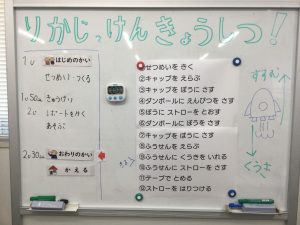 りかじっけんきょうしつ！
1じ はじめのかい
せつめい・つくる
1じ50ぷん きゅうけい
2じ レポートをかく
あそぶ
2じ30ぷん おわりのかい
かえる
①せつめいを きく
②キャップを えらぶ
③キャップを ぼうに さす
④ダンボールに えんぴつを さす
⑤ぼうに ストローを とおす
⑥ダンボールに ぼうを さす
⑦キャップを ぼうに さす
⑧ふうせんを えらぶ
⑨ふうせんに くうきを いれる
⑩ふうせんに ストローを さす
⑪テープで とめる
⑫ストローを はりつける
すすむ
くうき